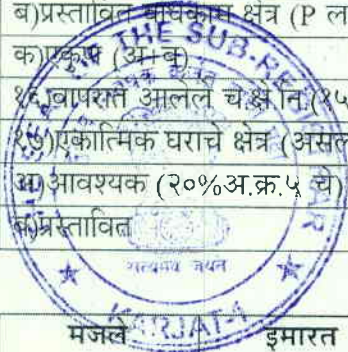 ब)प्रस्तावित बांधकाम क्षेत्र (P ल
क)एकूण (अ+ब)
१६)वापरात आलेले च क्षे नि (१५
१७)एकात्मिक घराचे क्षेत्र (असल
अ)आवश्यक (२०%अ.क्र.५ चे)
ब)प्रस्तावित
THE SUB-REGISTRAR
सत्यमेव जयते
KARJAT-1
मजले इमारत